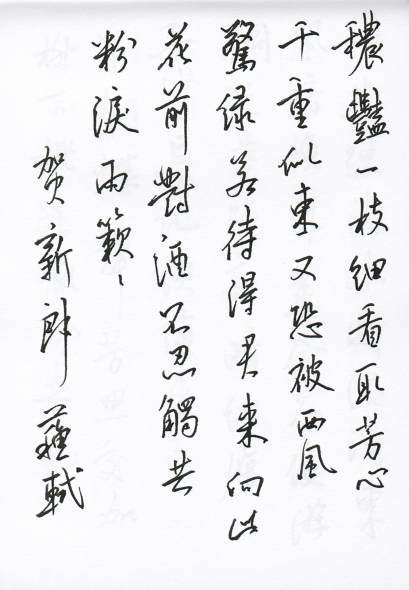 穠豔一枝細看取芳心
千重似束又恐被西風
驚綠若待得君来向此
花前對酒不忍觸共
粉淚兩簌〻
贺新郎 蘇軾